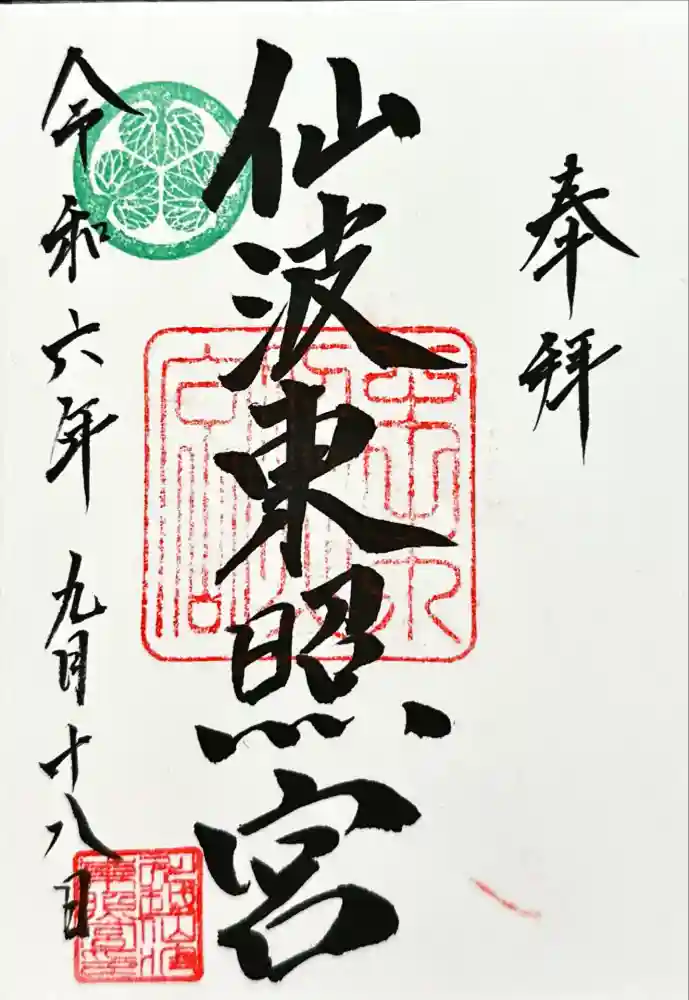 奉拝
仙波東照宮
令和六年九月十八日